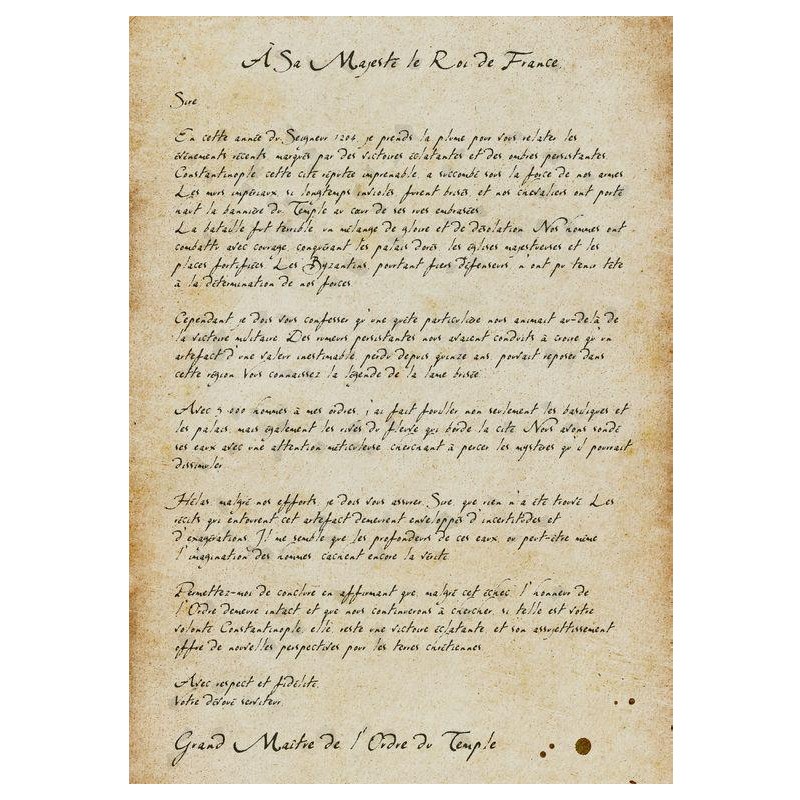 À Sa Majesté le Roi de France
Sire
En cette année du Seigneur 1204, je prends la plume pour vous relater les
événements récents, marqués par des victoires éclatantes et des ombres persistantes.
Constantinople, cette cité réputée imprenable, a succombé sous la force de nos armes.
Les murs impériaux, si longtemps inviolés, furent brisés, et nos chevaliers ont porté
haut la bannière du Temple au cœur de ses rues embrasées.
La bataille fut terrible, un mélange de gloire et de désolation. Nos hommes ont
combattu avec courage, conquérant les palais dorés, les églises majestueuses et les
places fortifiées. Les Byzantins, pourtant fiers défenseurs, n'ont pu tenir tête
à la détermination de nos forces.
Cependant, je dois vous confesser qu'une quête particulière nous animait au-delà de
la victoire militaire. Des rumeurs persistantes nous avaient conduits à croire qu'un
artefact d'une valeur inestimable, perdu depuis quinze ans, pouvait reposer dans
cette région. Vous connaissez la légende de la lame brisée.
Avec 5 000 hommes à mes ordres, j'ai fait fouiller non seulement les basiliques et
les palais, mais également les rives du fleuve qui borde la cité. Nous avons sondé
ses eaux avec une attention méticuleuse, cherchant à percer les mystères qu'il pourrait
dissimuler.
Hélas, malgré nos efforts, je dois vous assurer, Sire, que rien n'a été trouvé. Les
récits qui entourent cet artefact demeurent enveloppés d'incertitudes et
d'exagérations. Il me semble que les profondeurs de ces eaux, ou peut-être même
l'imagination des hommes, cachent encore la vérité.
Permettez-moi de conclure en affirmant que, malgré cet échec, l'honneur de
l'Ordre demeure intact et que nous continuerons à chercher, si telle est votre
volonté. Constantinople, elle, reste une victoire éclatante, et son assujettissement
offre de nouvelles perspectives pour les terres chrétiennes.
Avec respect et fidélité,
Votre dévoué serviteur,
Grand Maître de l'Ordre du Temple